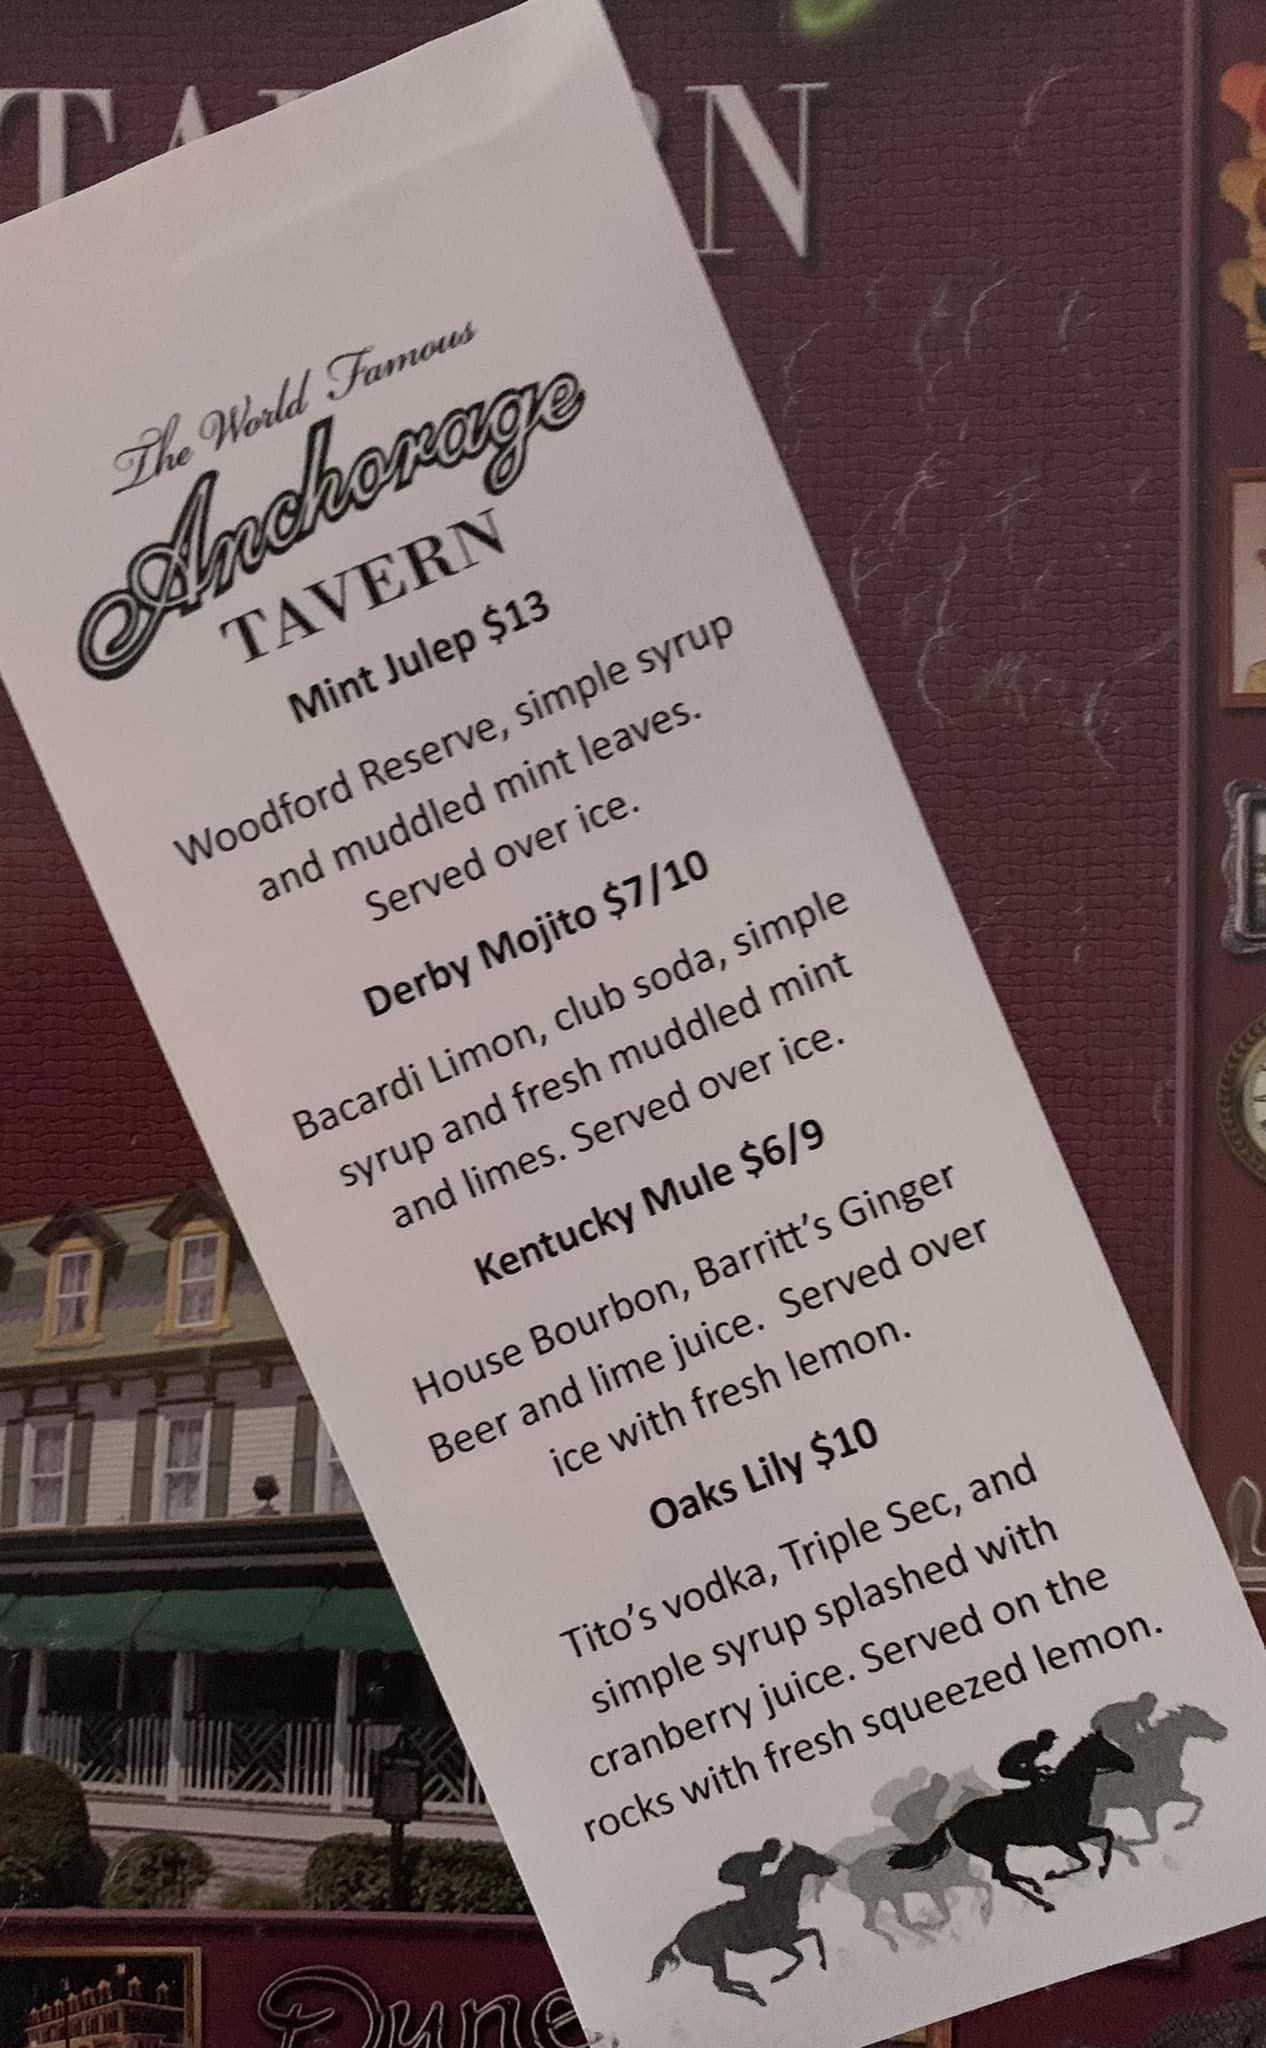 TAVERN
The World Famous
Anchorage
TAVERN
Mint Julep $13
Woodford Reserve, simple syrup
and muddled mint leaves.
Served over ice.
Derby Mojito $7/10
Bacardi Limon, club soda, simple
syrup and fresh muddled mint
and limes. Served over ice.
Kentucky Mule $6/9
House Bourbon, Barritt's Ginger
Beer and lime juice.  Served over
ice with fresh lemon.
Oaks Lily $10
Tito's vodka, Triple Sec, and
simple syrup splashed with
cranberry juice. Served on the
rocks with fresh squeezed lemon.
Dune